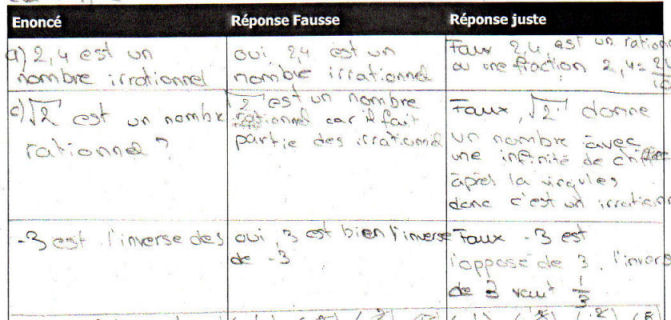 Enoncé Réponse Fausse Réponse juste
a) 2,4 est un
nombre irrationnel
oui, 2,4 est un
nombre irrationnel
Faux 2,4 est un rationn
ou une fraction 2,4=24
10
c) √2 est un nombre
rationnel ?
√2 est un nombre
rationnel car il fait
partie des irrationnel
Faux, √2 donne
un nombre avec
une infinité de chiffre
après la virgules
donc c'est un irration
-3 est l'inverse de 3
oui, 3 est bien l'inverse
de -3
Faux -3 est
l'opposé de 3. l'invers
de 3 vaut 1/3